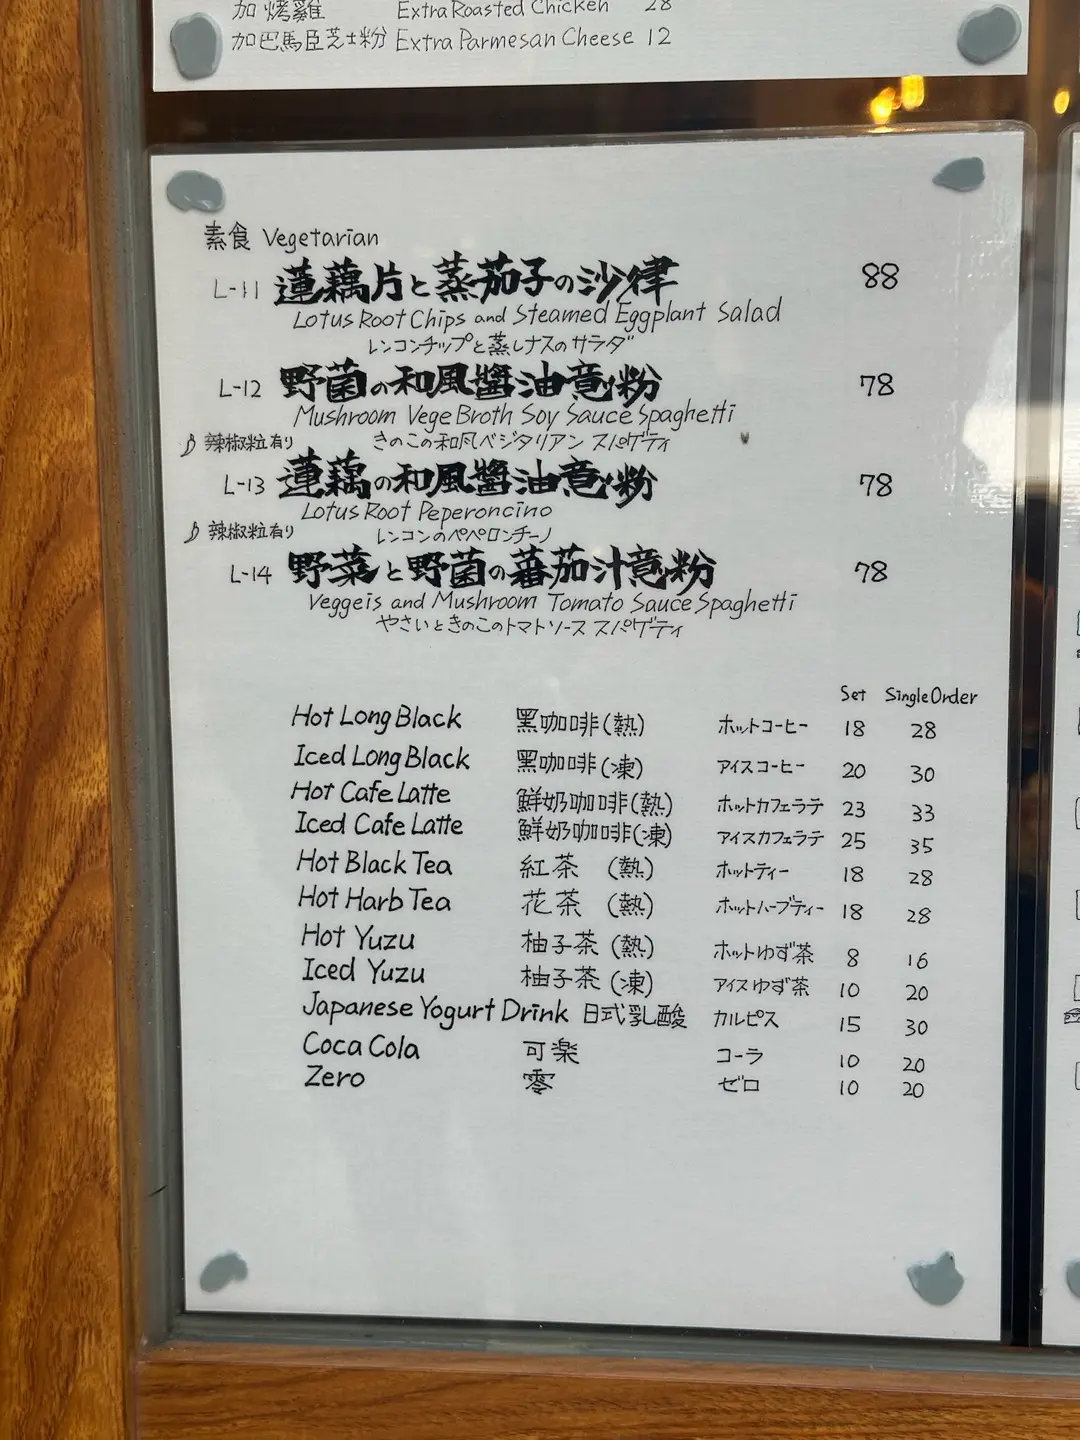 加烤雞 Extra Roasted Chicken 28
加巴馬臣芝士粉 Extra Parmesan Cheese 12
素食 Vegetarian
L-11 蓮藕片と蒸茄子の沙律 88
Lotus Root Chips and Steamed Eggplant Salad
レンコンチップと蒸しナスのサラダ
L-12 野菌の和風醬油意粉 78
Mushroom Vege Broth Soy Sauce Spaghetti
辣椒粒有り きのこの和风ベジタリアン スパゲティ
L-13 蓮藕の和風醬油意粉 78
Lotus Root Peperoncino
辣椒粒有り レンコンのペペロンチーノ
L-14 野菜と野菌の蕃茄汁意粉 78
Veggeis and Mushroom Tomato Sauce Spaghetti
やさいときのこのトマトソース スパゲティ
Set Single Order
Hot Long Black 黑咖啡(熱) ホットコーヒー 18 28
Iced Long Black 黑咖啡(凍) アイスコーヒー 20 30
Hot Cafe Latte 鮮奶咖啡(熱) ホットカフェラテ 23 33
Iced Cafe Latte 鮮奶咖啡(凍) アイスカフェラテ 25 35
Hot Black Tea 紅茶 (熱) ホットティー 18 28
Hot Harb Tea 花茶 (熱) ホットハーブティー 18 28
Hot Yuzu 柚子茶(熱) ホットゆず茶 8 16
Iced Yuzu 柚子茶(凍) アイスゆず茶 10 20
Japanese Yogurt Drink 日式乳酸 カルピス 15 30
Coca Cola 可楽 コーラ 10 20
Zero 零 ゼロ 10 20